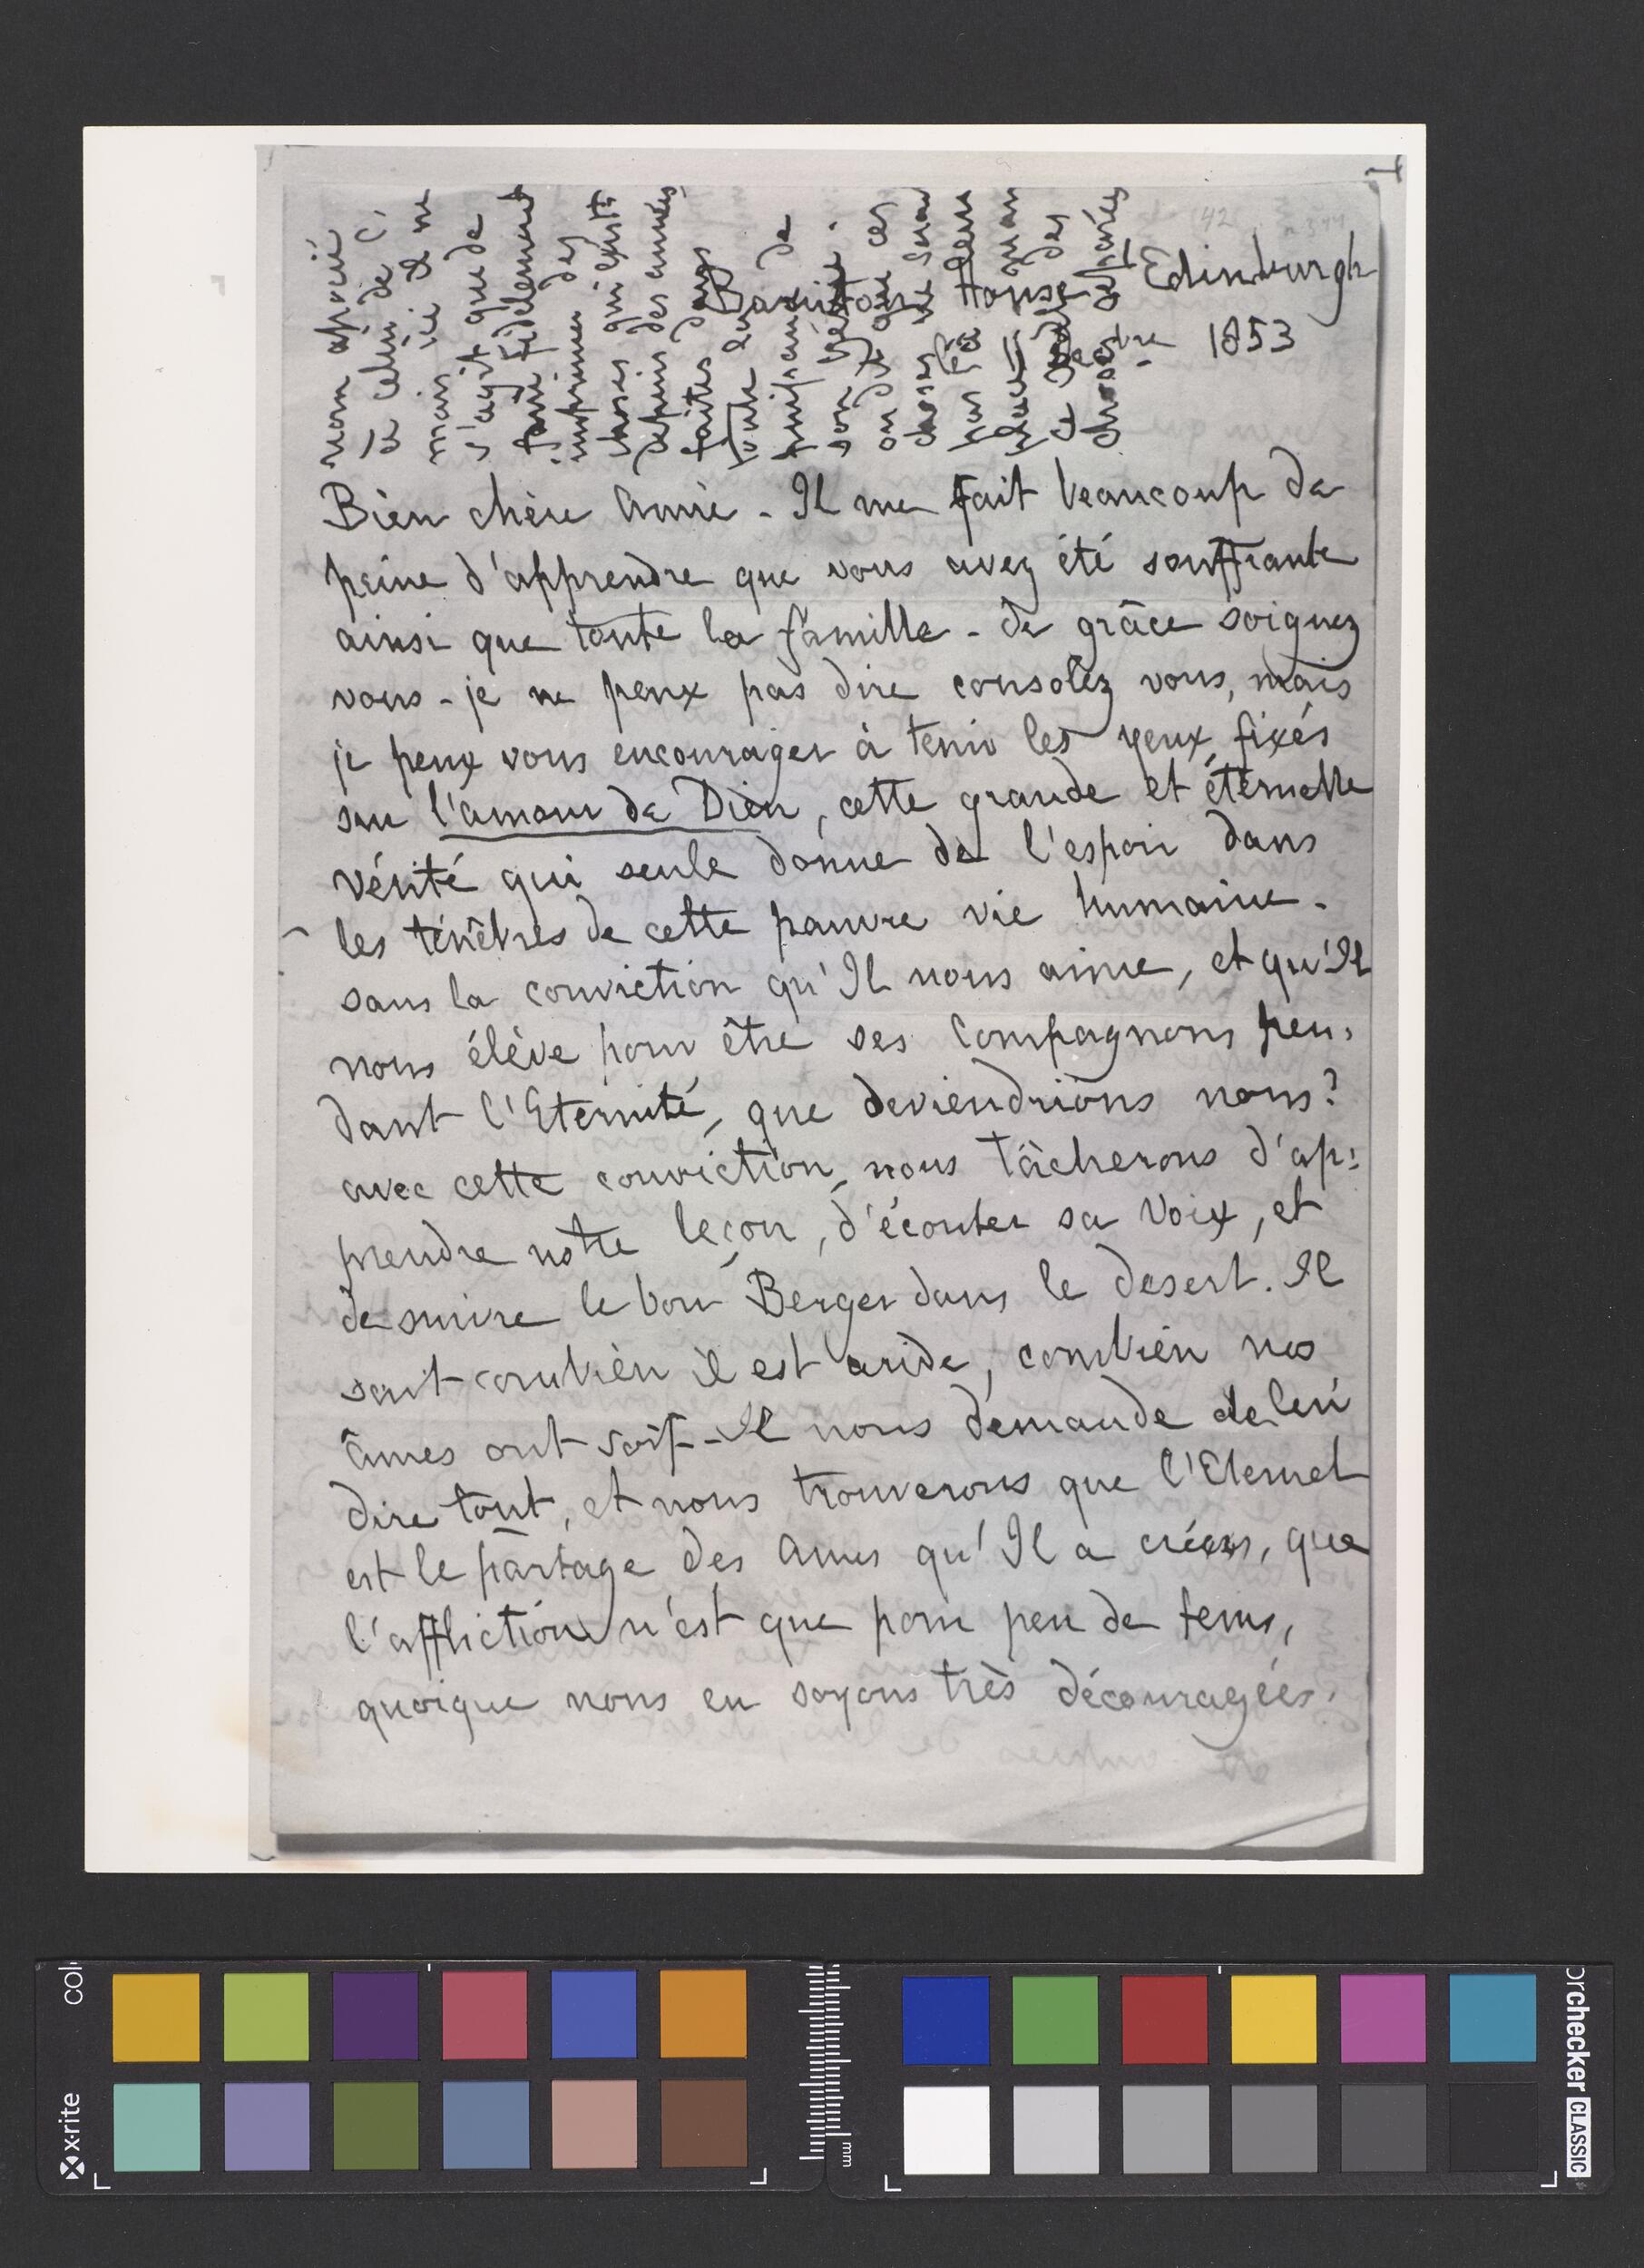 Barnton House Edinburgh
1853
Bien chère Amie - Il me fait beaucoup de
peine d'apprendre que vous avez été souffrante
ainsi que toute la famille - de grâce soignez
vous - je ne peux pas dire consolez vous, mais
je peux vous encourager à tenir les yeux fixés
sur l'amour de Dieu, cette grande et éternelle
vérité qui seule donne de l'espoir dans
les ténèbres de cette pauvre vie humaine -
sans la conviction qu'Il nous aime, et qu'Il
nous élève pour être ses Compagnons pen:
dant l'Eternité, que deviendrions nous?
avec cette conviction, nous tâcherons d'ap:
prendre notre leçon, d'écouter sa Voix, et
de suivre le bon Berger dans le desert. Il
sait combien il est aride, combien nos
âmes ont soif - Il nous demande de lui
dire tout, et nous trouverons que l'Eternel
est le partage des ames qu'Il a créées, que
l'affliction n'est que pour peu de tems,
quoique nous en soyons très découragées.
non apprécié
à celui de
mais vie de ne
s'agit que de
faire fidèlement
imprimer des
choses qui existent
depuis des années
faites dans
toute la
puissance de
son génie.
ou de que ces
choses
choses
1